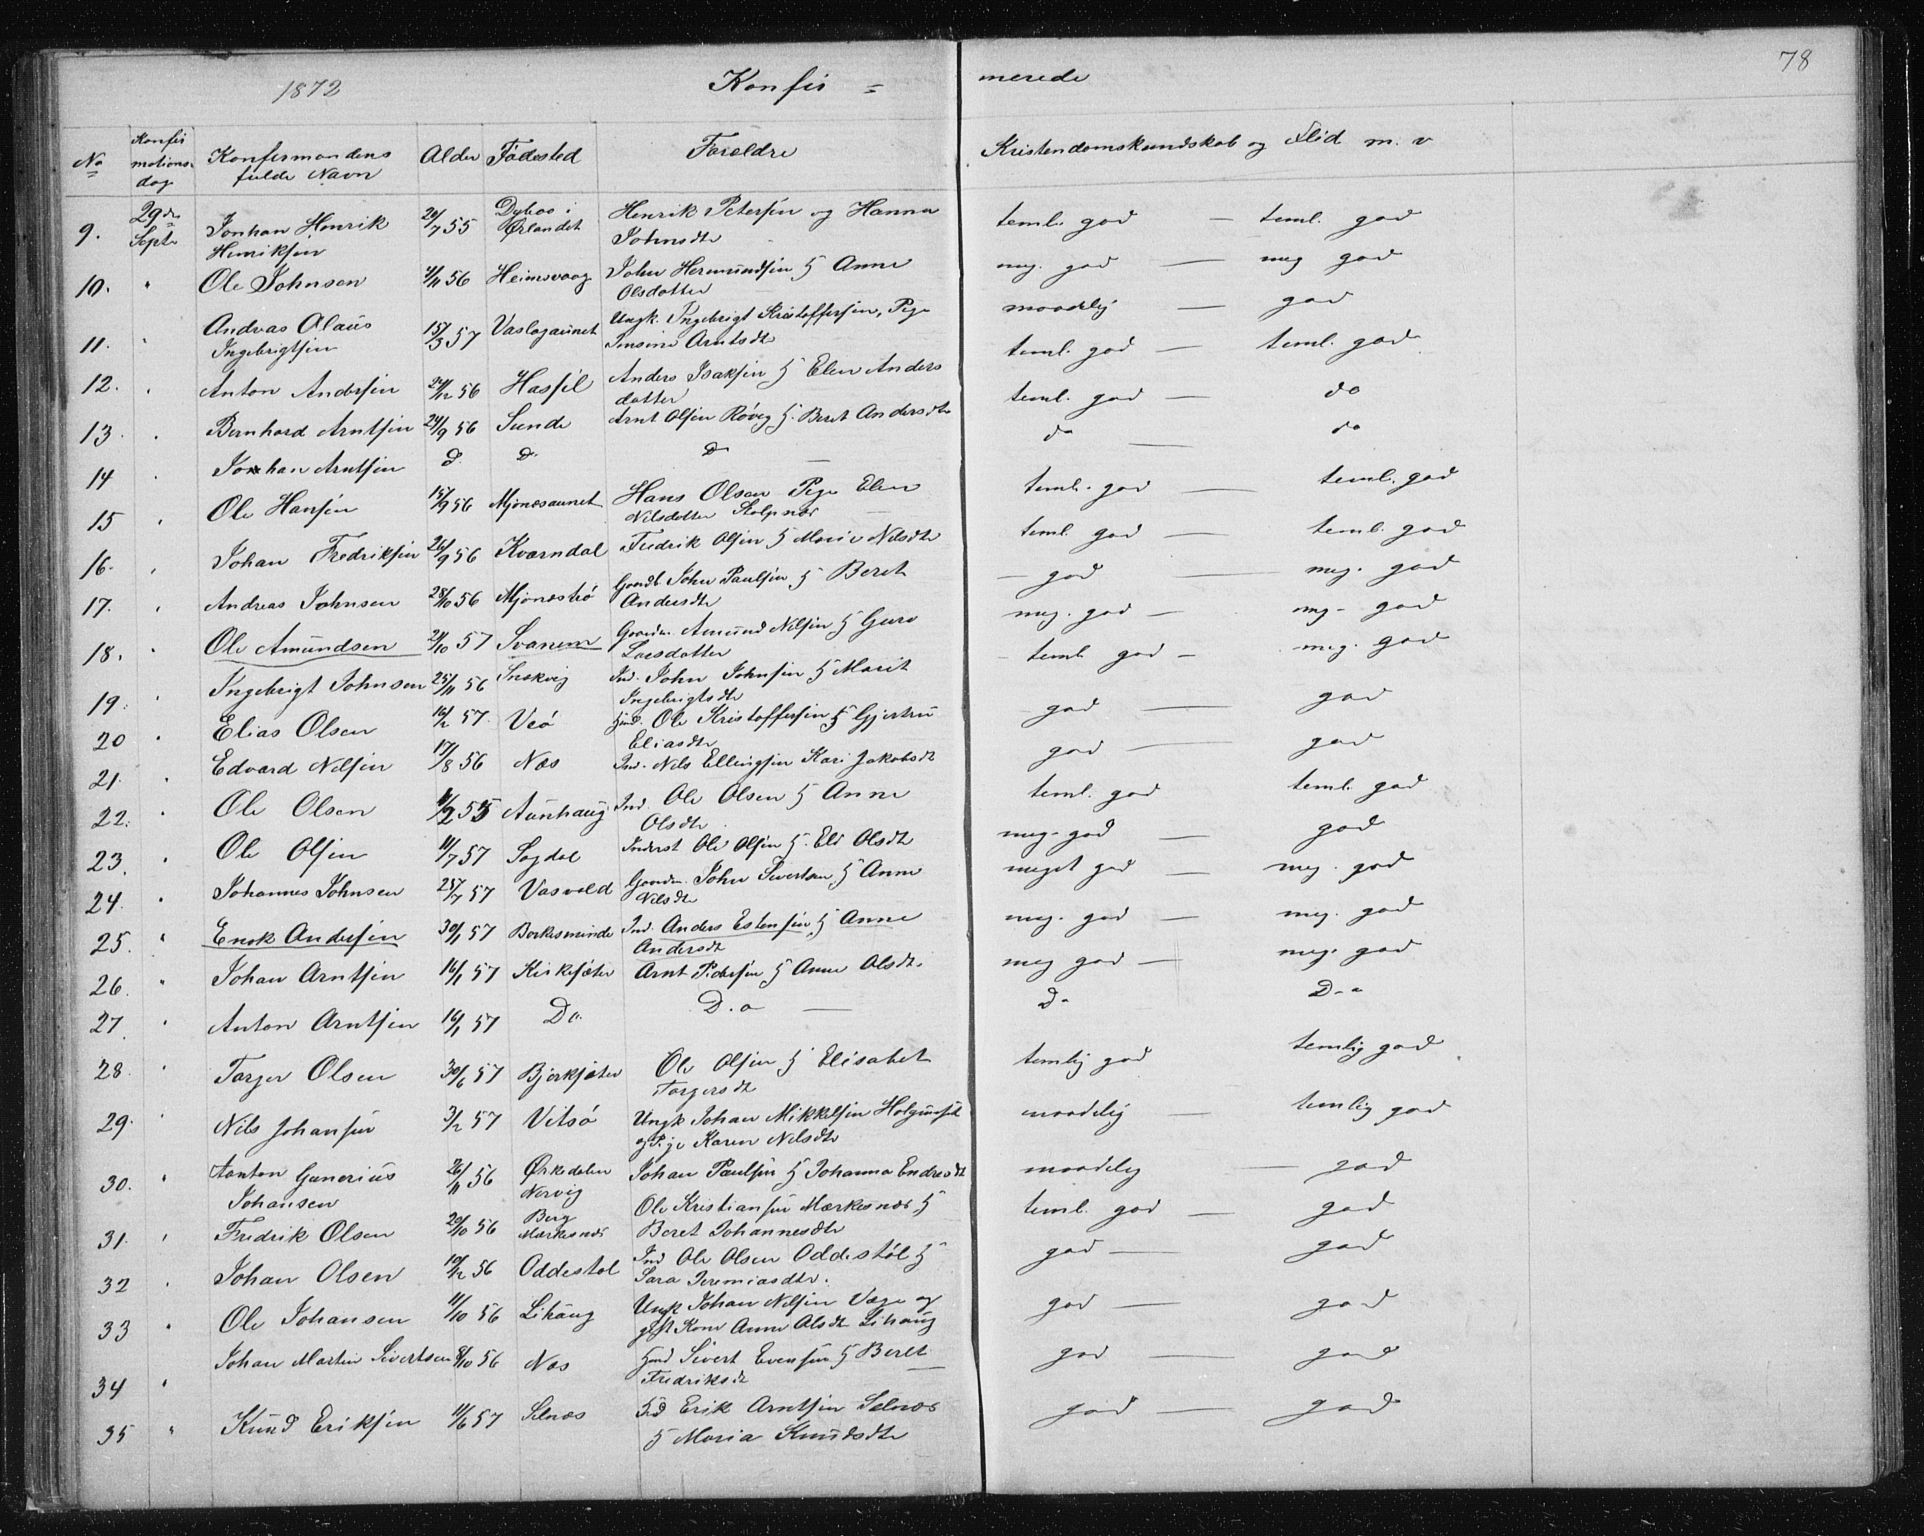 78
1872 Konfir = merede
No Konfirmationsdag Konfirmandens fulde Navn Alder Födested Forældre Kristendomskundskab og Flid m. v
9. 29de Septr Jonhan Henrik Henriksen 20/7 55 Dybos i Ørlandet Henrik Petersen og Hanna Johnsdtr teml. god — teml. god
10. " Ole Johnsen 4/11 56 Heimsvaag John Hermundsen & Anne Olsdatter meg. god — meg god
11. " Andreas Olaus Ingebrigtsen 15/3 57 Vaslagaunet Ungk. Ingebrigt Kristoffersen, Pige Arntsdtr maadelig — god
12. " Anton Andersen 24/12 56 Hasfil Anders Isaksen & Elen Andersdatter teml. god — teml. god
13. " Bernhard Arntsen 24/9 56 Sunde Arnt Olsen Røvig & Beret Andersdtr teml. god — do
14 " Johan Arntsen D. D. D — do — do
15 " Ole Hansen 15/9 56 Mjønesaunet Hans Olsen Pige Elen Nilsdatter Stolpnes teml. god — teml. god
16. " Johan Fredriksen 26/9 56 Kværndal Fredrik Olsen & Marie Nilsdtr teml. god — teml. god
17. " Andreas Johnsen 28/10 56 Mjønestrø Gaardb. John Paulsen & Beret Andersdtr — god — meg. god
18. " Ole Amundsen 21/10 57 Svanem Gaardm. Amund Nilsen & Guro Larsdatter meg. god — meg. god
19. " Ingebrigt Johnsen 25/11 56 Snekvig Ind. John Johnsen & Marit Ingebrigtsdtr teml. god — meg. god
20 " Elias Olsen 16/2 57 Veö Hmd. Ole Kristoffersen & Gjertru Eliasdtr god — god
21. " Edvard Nilsen 17/8 56 Næs Ind. Nils Ellingsen Kari Jakobsdt god — god
22. " Ole Olsen 11/2 55 Aunhaug Ind. Ole Olsen & Anne Olsdtr teml. god teml. god
23. " Ole Olsen 11/7 57 Sagdal Inderst Ole Olsen & Eli Olsdt meg. god — god
24. " Johannes Johnsen 25/7 57 Vasvold Gaardm. John Sivertsen & Anne Nilsdtr meget god — meg. god
25. " Enok Andersen 30/1 57 Borkesminde Ind. Anders Estensen & Anne Andersdt meg. god — meg. god
26. " Johan Arntsen 16/1 57 Kirksæter Arnt Pedersen & Anne Olsdt. meg god — meg. god
27 " Anton Arntsen 16/1 57 Do. D.o — D.o D-o
28. " Torger Olsen 30/6 57 Bjerksæter Ole Olsen & Elisabet Torgersdt temlig god temlig god
29. " Nils Johansen 3/2 57 Vitsö Ungk Johan Mikkelsen og Pige Karen Nilsdtr maadelig — temlig god
30. " Anton Gunerius Johansen 26/11 56 Ørkedalen Nervig Johan Paulsen & Johanna Endresdt maadelig — god
31. " Fredrik Olsen 20/10 56 Berg Mærkesnes Ole Kristiansen Mærkesnes & Beret Johannesdtr teml. god — god
32 " Johan Olsen 10/12 56 Oddestøl Ind Ole Olsen Oddestøl & Sara Jeremiasdtr. god — god
33 " Ole Johansen 11/10 56 Lihaug Ungk Johan Nilsen Væge og gift Kone Anne Olsdt Lihaug god — god
34 " Johan Martin Sivertsen 8/10 56 Næs Hmd Sivert Evensen & Beret Fredriksdt god — god
35 " Knud Eriksen 11/6 57 Selnæs Erik Arntsen Selnæs & Maria Knudsdtr god — god